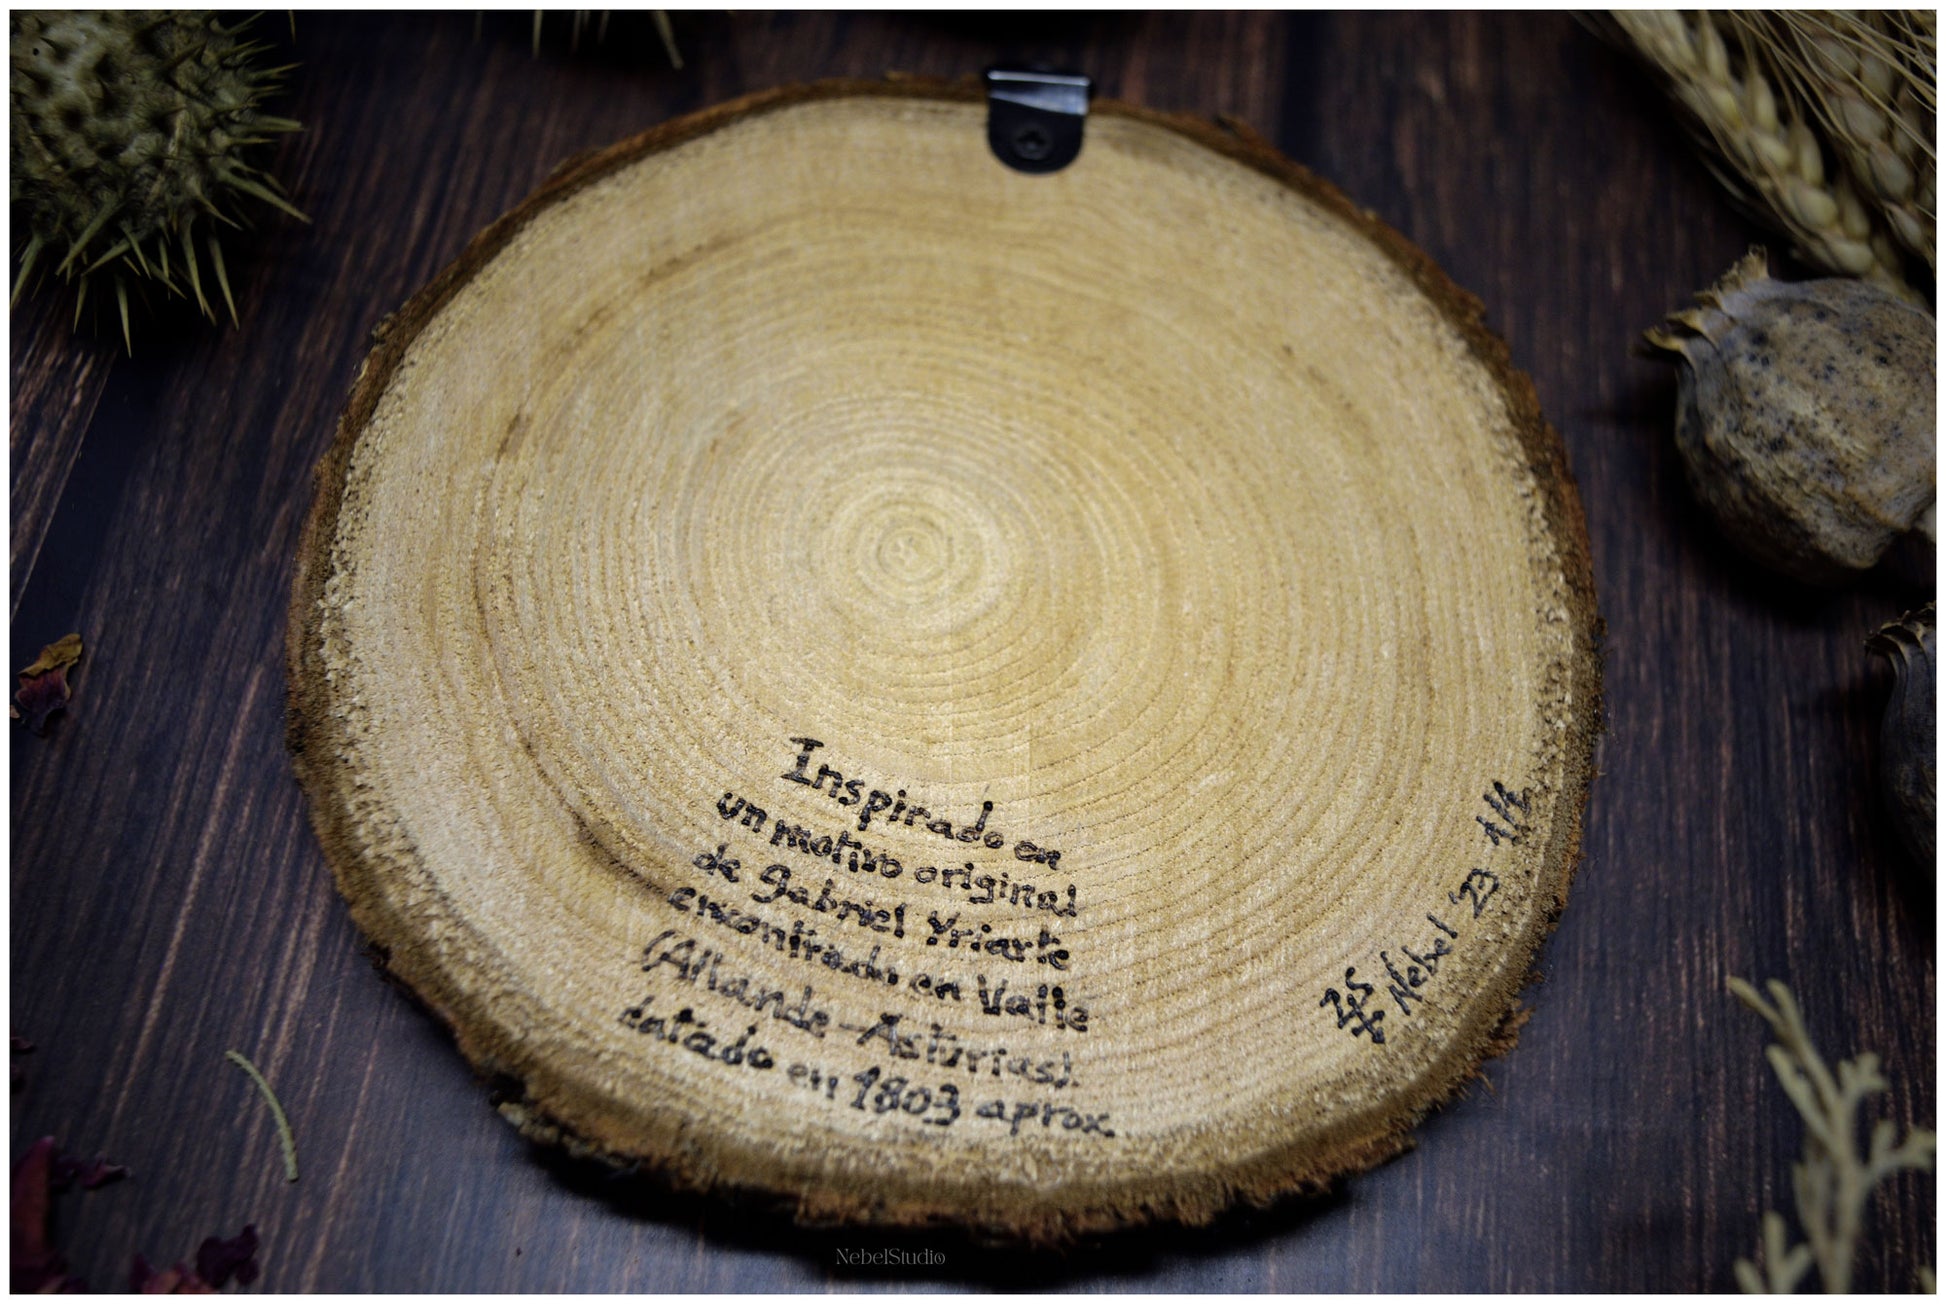 Inspirado en
un motivo original
de Gabriel Yriarte
encontrado en Valle
(Allande-Asturias).
datado en 1803 aprox.
Nebel '23 1/1
NebelStudio